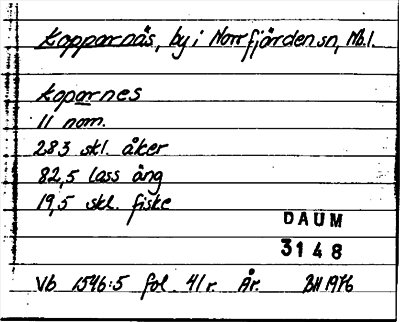 Kopparnäs, by i Norrfjärden sn, Nb.l.
Kopornes
11 nom.
283 skl. åker
82,5 lass äng
19,5 skl. fiske
DAUM
3148
Vb 1546:5 fol. 41r. År. BH 1976